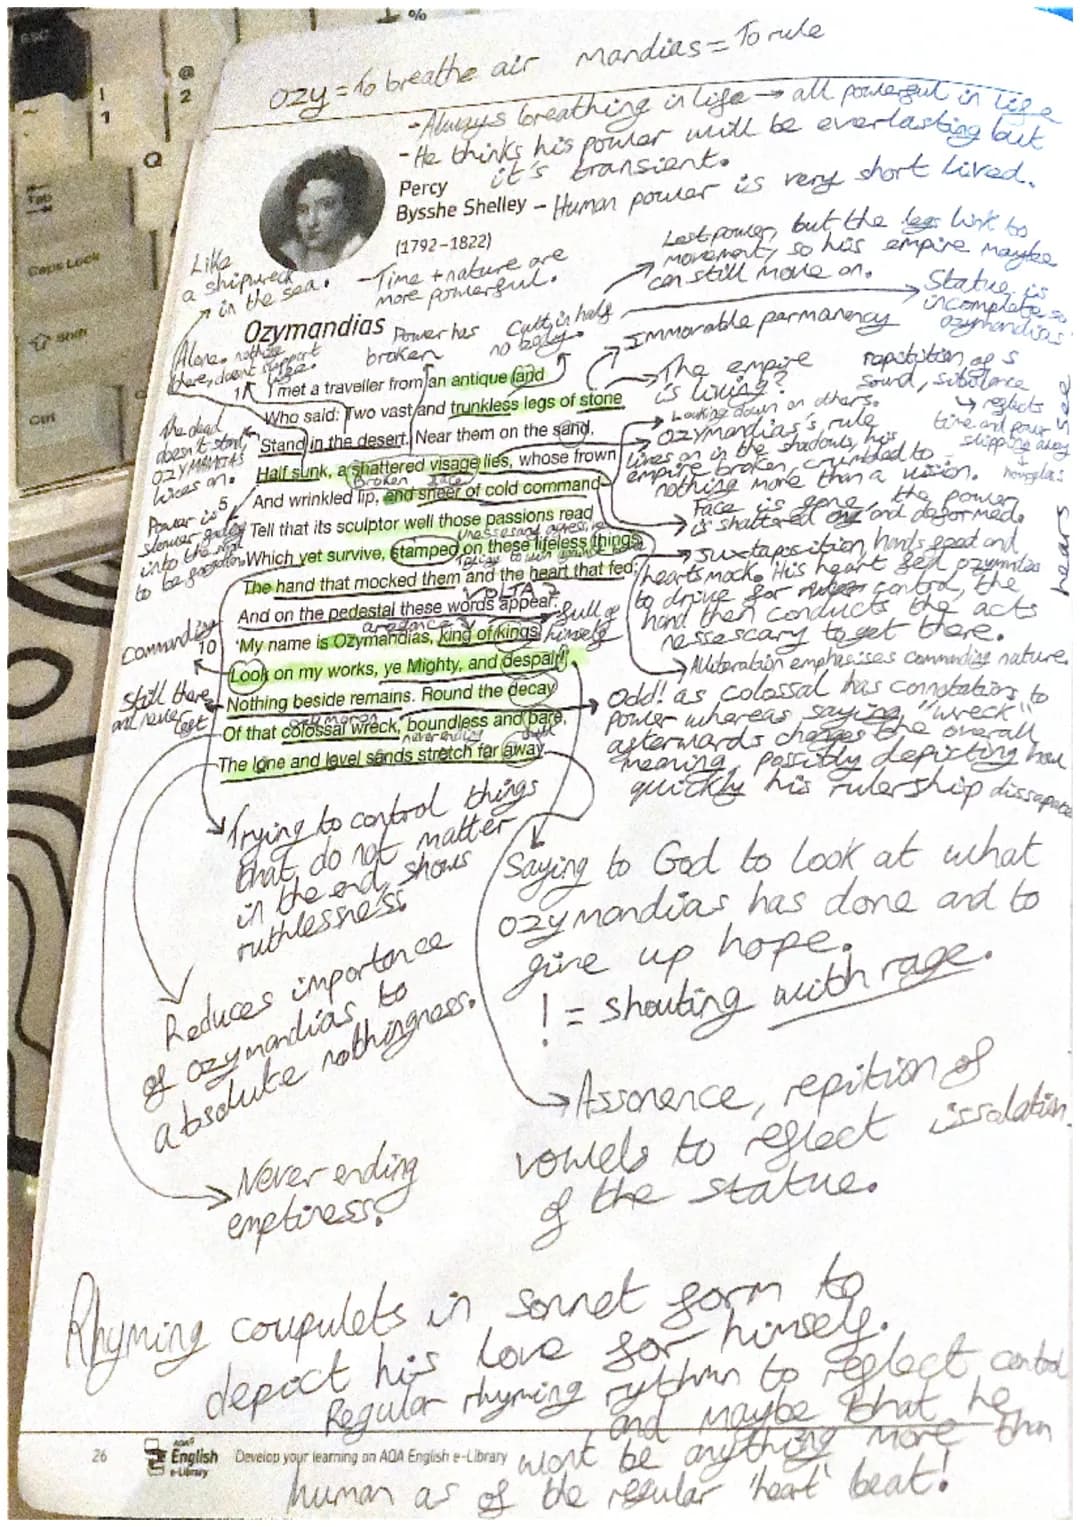 %
ESC
~
!
1
@
2
Q
Tab
Caps Lock
Shift
Ctrl
Ozy = To breathe air mandias = To rule
- Always breathing in life → all powerful in life
- He thinks his power will be everlasting but
it's transient.
Percy
Bysshe Shelley - Human power is very short lived.
(1792–1822)
- Time + nature are
more powerful.
Like
a shipwreck
in the sea.
Lost power, but the legs link to
movement, so his empire maybe
can still move on.
Statue is
incomplete so
Ozymandias
Ozymandias
Power has
broken
Cutt in half
no body
Immorable parmanency
Alone. nothing
there, doesnt support
life.
The empire
is living?
repitition of S
sound, sibolance
reflects
time and power
slipping away
hourglass
I met a traveller from an antique land
Who said: Two vast and trunkless legs of stone
Stand in the desert. Near them on the sand,
Half sunk, a shattered visage lies, whose frown
Broken face
5
And wrinkled lip, and sneer of cold command
Tell that its sculptor well those passions read
Which yet survive, stamped on these lifeless things,
The hand that mocked them and the heart that fed;
VOLTA
And on the pedestal these words appear:
arogance
10
'My name is Ozymandias, king of kings:
full of
himself
Look on my works, ye Mighty, and despair!'
Nothing beside remains. Round the decay
oxymoron
Of that colossal wreck, boundless and bare,
never ending
The lone and level sands stretch far away.
The dead
doesn't stand,
OZYMANDIAS
lives on.
Power is
slower going
into the
to be
Commanding
Still there
and never
left
Looking down on others.
Ozymandias's rule
lives on in the shadows, his
empire broken, crumbled to
nothing more than a vision.
Face is gone, the power
is shattered and deformed.
Juxtaposition, hands feed and
hearts mock. His heart fed ozymandias
to drive for control, the
hand then conducts the acts
nessescary to get there.
hears
Aliteratain emphasises commanding nature.
Odd! as colossal has connotations to
power whereas saying "wreck"
afterwards changes the overall
meaning, possibly depicting how
quickly his rulership dissapate
Trying to control things
that do not matter
in the end, shows
ruthlessness.
Saying to God to look at what
ozymandias has done and to
give up hope.
! = shouting with rage.
Reduces importance
of ozymandias to
absolute nothingness.
Assonence, repition of
vowels to reflect issolation
of the statue.
Never ending
emptiness.
Rhyming couplets in sonnet form to
depict his love for himself.
Regular rhyming rythmn to reflect control
and maybe that he
wont be anything more than
human as of the regular 'heart' beat!
26
AQA
English
e-Library
Develop your learning on AQA English e-Library